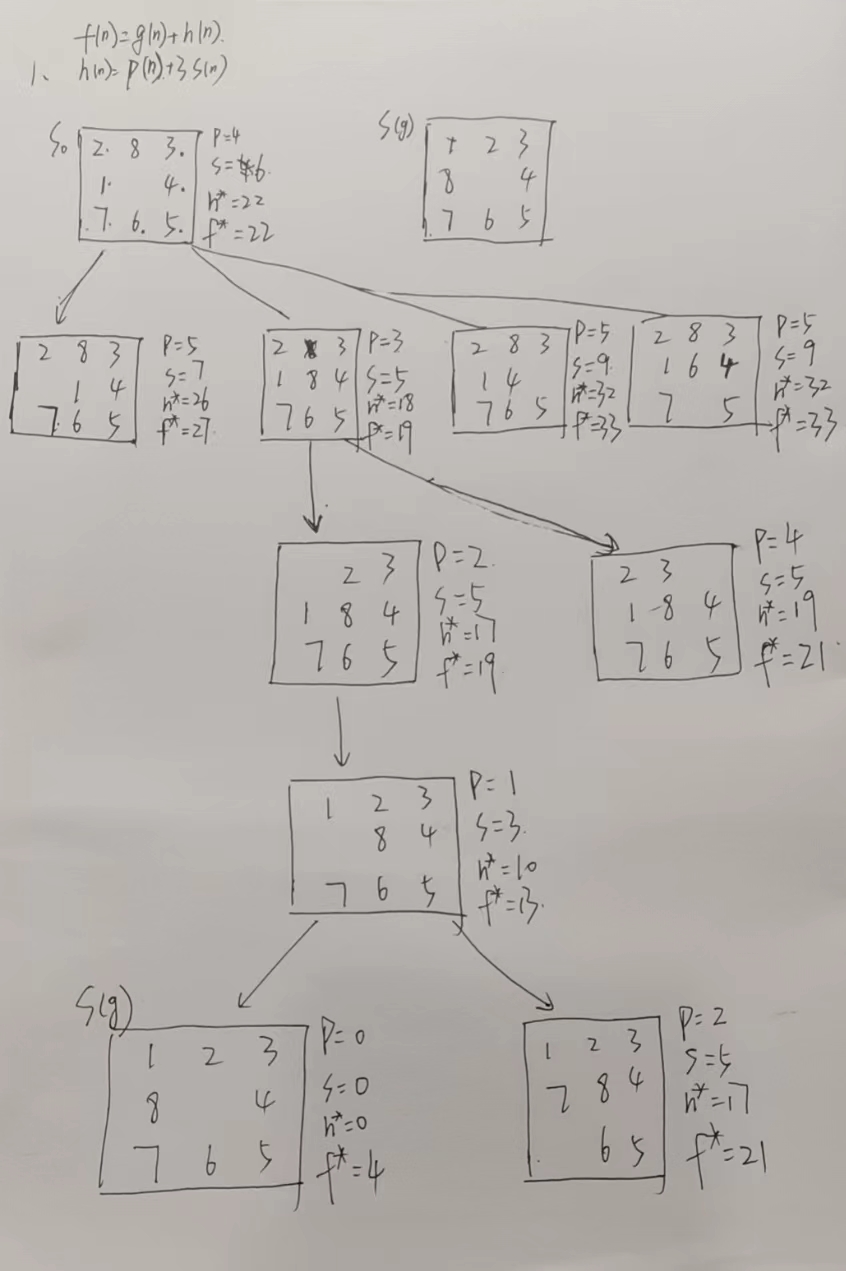 f(n)=g(n)+h(n).
1、 h(n)=P(n)+3S(n)
S₀
2. 8 3.
1. 4.
7. 6. 5.
P=4
S=6.
h*=22
f*=22
S(g)
1 2 3
8 4
7 6 5
2 8 3
1 4
7. 6 5
P=5
S=7
h*=26
f*=27
2 3
1 8 4
7 6 5
P=3
S=5
h*=18
f*=19
2 8 3
1 4
7 6 5
P=5
S=9.
h*=32
f*=33
2 8 3
1 6 4
7 5
P=5
S=9
h*=32
f*=33
2 3
1 8 4
7 6 5
P=2.
S=5
h*=17
f*=19
2 3
1 8 4
7 6 5
P=4
S=5
h*=19
f*=21
1 2 3
8 4
7 6 5
P=1
S=3.
h*=10
f*=13.
S(g)
1 2 3
8 4
7 6 5
P=0
S=0
h*=0
f*=4
1 2 3
7 8 4
6 5
P=2
S=5
h*=17
f*=21